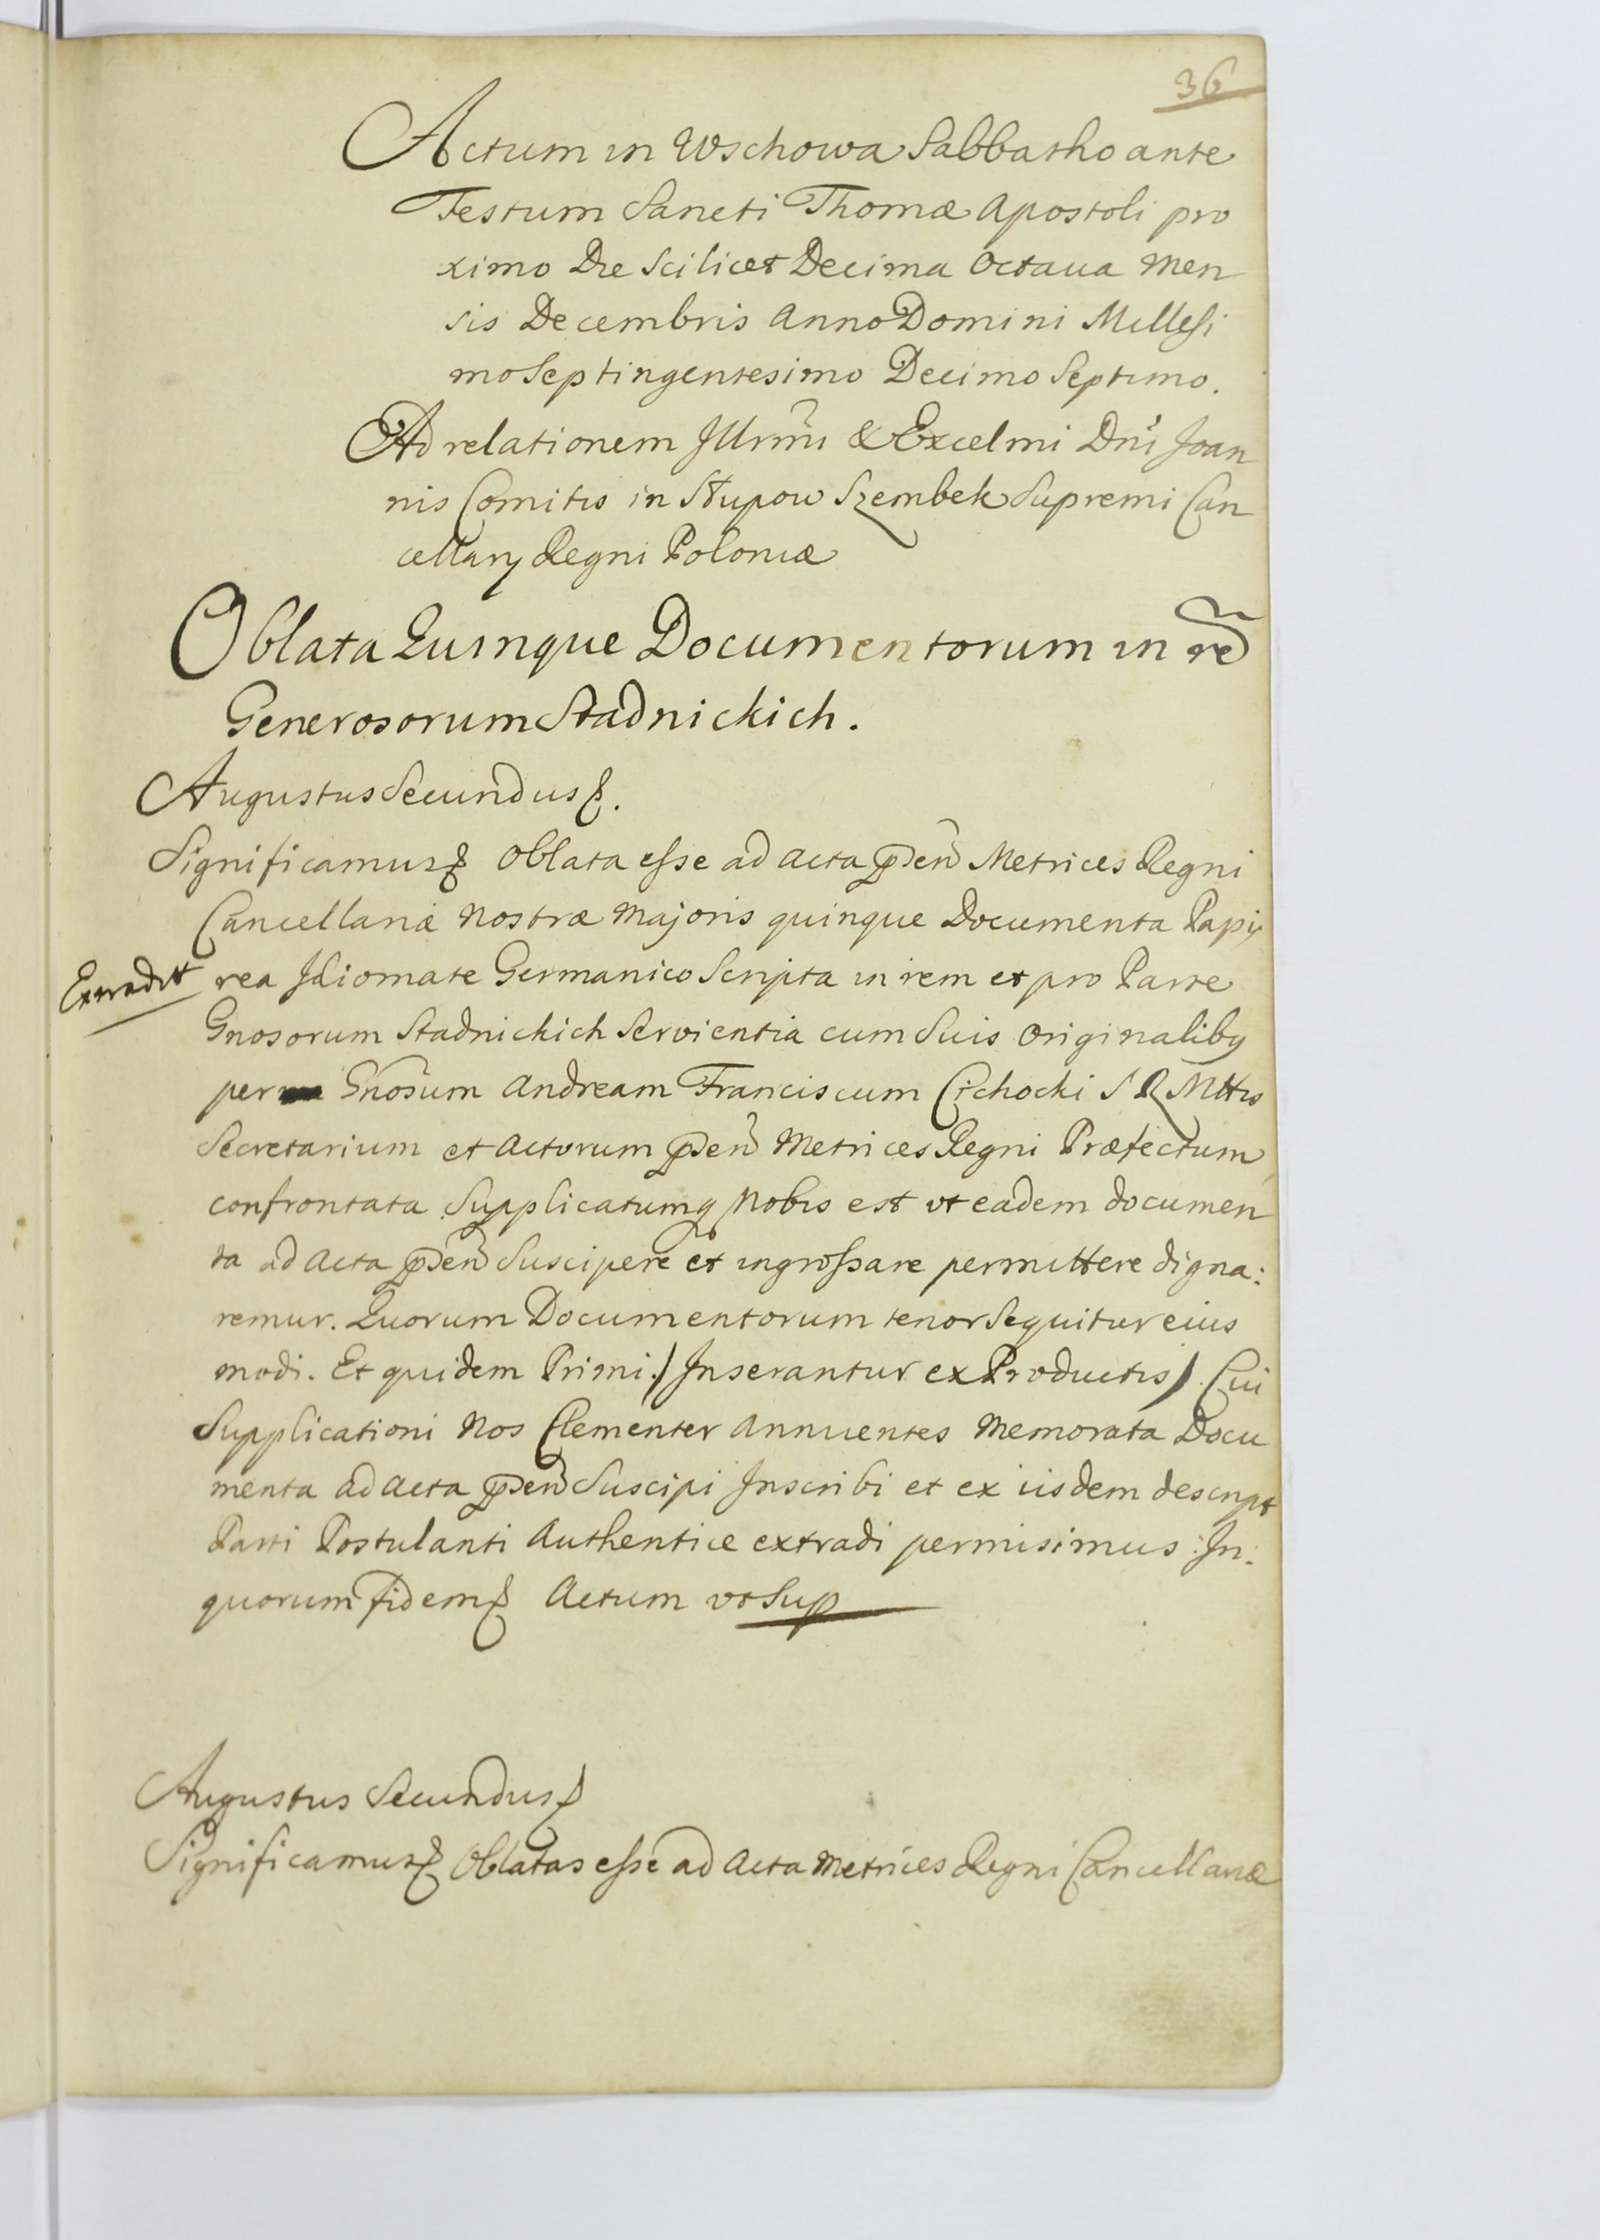 36
Actum in Wschowa Sabbatho ante
Festum Sancti Thomæ Apostoli pro
ximo Die Scilicet Decima Octaua Men
sis Decembris Anno Domini Millesi
mo Septingentesimo Decimo Septimo.
Ad relationem Illrmi & Excelmi Dni Joan
nis Comitis in Słupow Szembek Supremi Can
cellarij Regni Poloniæ
Oblata Quinque Documentorum in re
Generosorum Stadnickich.
Augustus Secundus
Significamus Oblata esse ad Acta pnen Metrices Regni
Cancellariæ Nostræ Majoris quinque Documenta Papy
Extradit rea Idiomate Germanico Scripta in rem et pro Parte
Gnosorum Stadnickich Servientia cum Suis Originaliby
per Gnosum Andream Franciscum Cichocki S R Mttis
Secretarium et Actorum pnen Metrices Regni Præfectum
confrontata Supplicatumq Nobis est vt eadem documen
ta ad Acta pnen Suscipere et ingrossare permittere digna:
remur. Quorum Documentorum tenor Sequitur eius
modi. Et quidem Primi./ Inserantur ex Productis) Cui
Supplicationi Nos Clementer Annuentes Memorata Docu
menta ad Acta pnen Suscipi Inscribi et ex iisdem descript
Parti Postulanti Authentice extradi permisimus: In:
quorum fidem Actum vt Sup
Augustus Secundus
Significamus Oblatas esse ad Acta Metrices Regni Cancellariæ